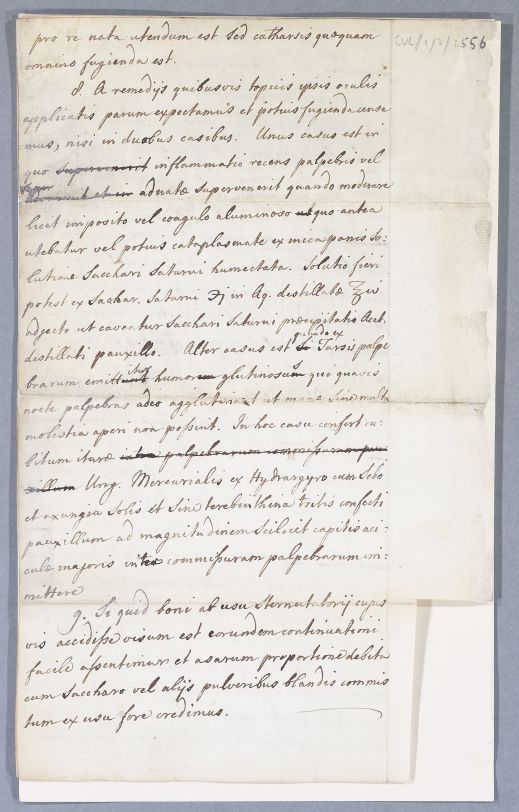 CUL/1/2/2556
pro re nata utendum est sed catharsis quæquam
omnino fugienda est.
8. A remedijs quibusvis topicis ipsis oculis
applicatis parum expectamus et potius fugienda cense
mus, nisi in duobus casibus. Unus casus est in
quo supervenerit inflammatio recens palpebris vel
adnatæ supervenerit quando moderare
licet imposito vel coagulo aluminoso ut quo antea
utebatur vel potius cataplasmate ex mica panis so:
lutione Sacchari Saturni humectata. Solutio fieri
potest ex Sacchar. Saturni ℈j in Aq. destillatæ ℥vi
adjecto ut caveatur Sacchari Saturni præcipitatio Acet.
destillati pauxillo. Alter casus est si Tarsis palpe
brarum humorem glutinosum qui quavis
nocte palpebras adeo agglutinat ut mane sine multa
molestia aperi non possint. In hoc casu confert cu:
bitum ituræ intra palpebrarum commissuram pau
xillum Ung. Mercurialis ex Hydrargyro cum Sebo
et axungia solis et sine terebinthina tritis confecti
pauxillum ad magnitudinem scilicet capitis aci:
culæ majoris inter commissuram palpebrarum im:
mittere
9. Si quid boni ab usu sternutatorij cujus
vis accidisse visum est eorundem continuationi
facile assentimur et asarum proportione debita
cum Saccharo vel alijs pulveribus blandis commis
tum ex usu fore credimus.